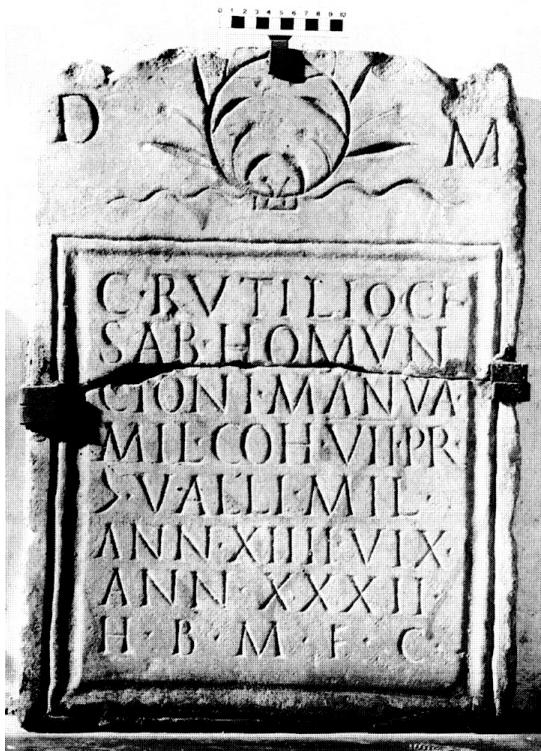 0 1 2 3 4 5 6 7 8 9 10
D M
C·RVTILIO·C·F
SAB·HOMVN
CIONI·MANVA·
MIL·COH·VII·PR·
>·VALLI·MIL·
ANN·XIIII·VIX·
ANN·XXXII·
H·B·M·F·C·